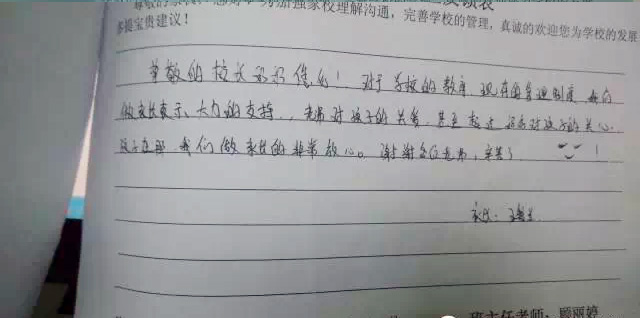 家校理解沟通，完善学校的管理，真诚的欢迎您为学校的发展
多提宝贵建议！
尊敬的校长 老师 您们！对于学校的教育、现有的管理制度，我们
做家长表示大力的支持。老师对孩子的关爱，甚至超过 对孩子的关心
孩子在 我们做家长的非常放心。谢谢各位老师，辛苦了 ！
家长：
班主任老师：顾丽婷